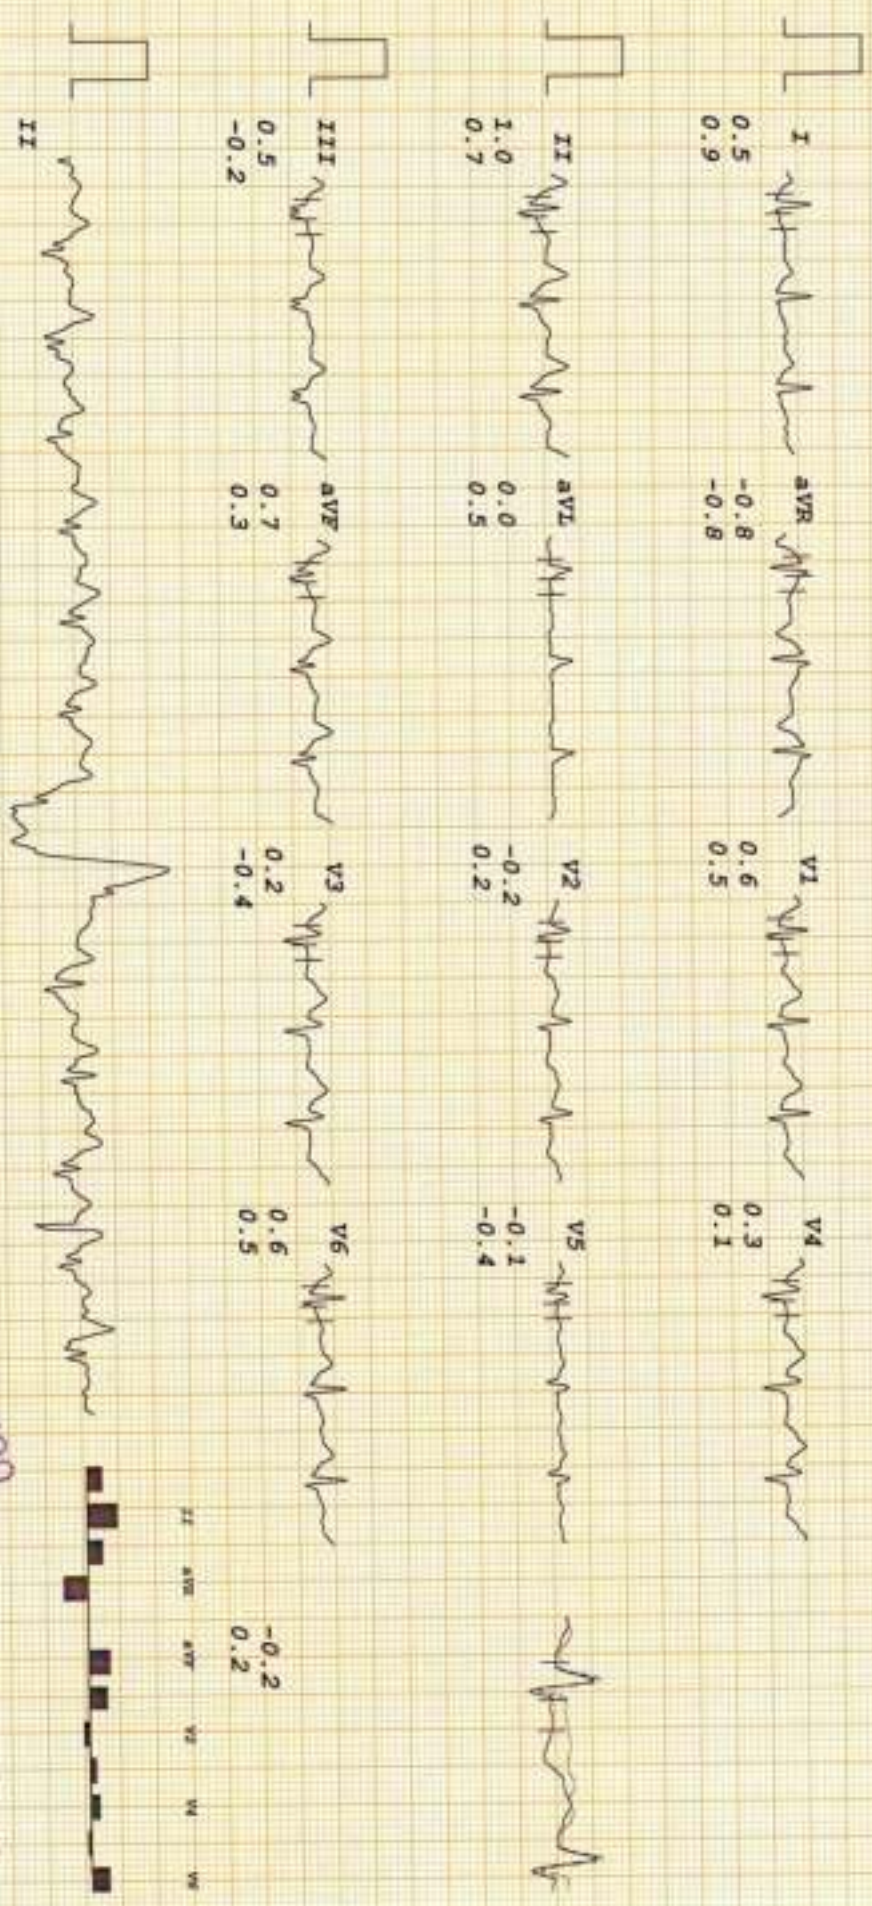 I
0.5
0.9
aVR
-0.8
-0.8
V1
0.6
0.5
V4
0.3
0.1
II
1.0
0.7
aVL
0.0
0.5
V2
-0.2
0.2
V5
-0.1
-0.4
III
0.5
-0.2
aVF
0.7
0.3
V3
0.2
-0.4
V6
0.6
0.5
-0.2
0.2
II
II
aVR
aVF
V2
V4
V6